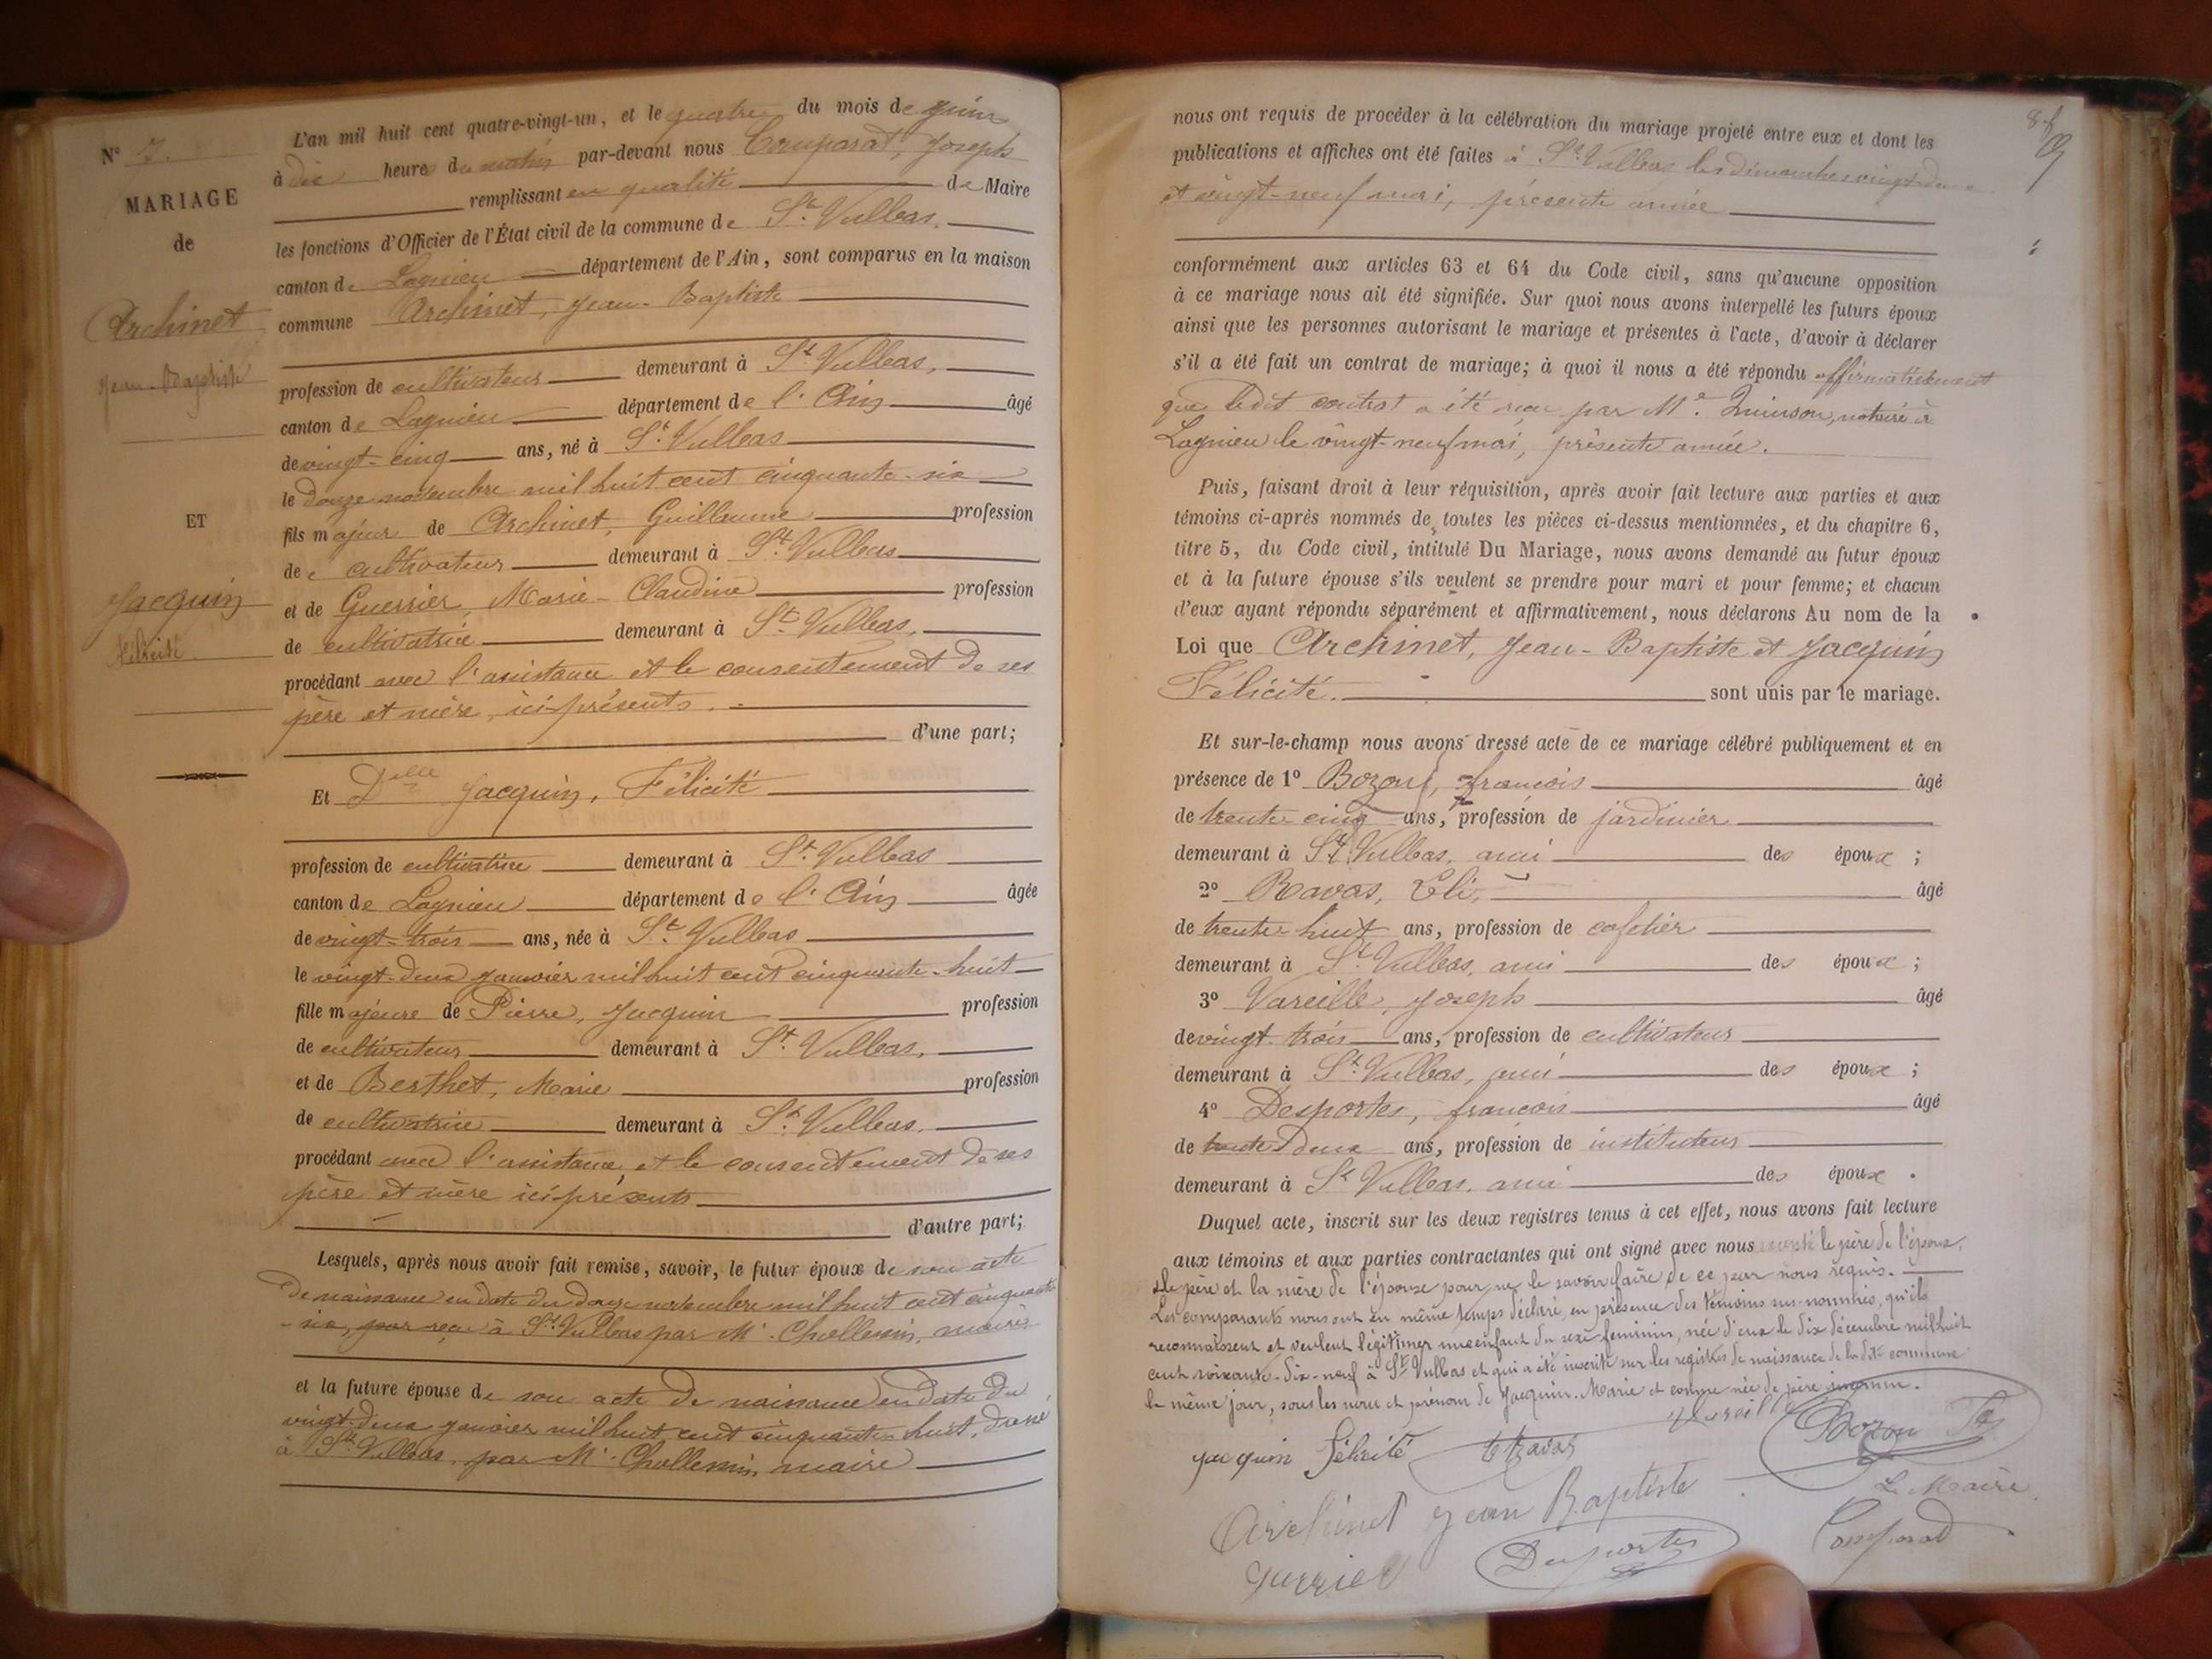 N° 7.
MARIAGE
de
Archinet
Jean-Baptiste
ET
Jacquin
Félicité
L'an mil huit cent quatre-vingt-un, et le quatre du mois de juin
à dix heures du matin par-devant nous Comparat, Joseph
remplissant en qualité de Maire
les fonctions d'Officier de l'État civil de la commune de St. Vulbas.
canton de Lagnieu département de l'Ain, sont comparus en la maison
commune Archinet, Jean-Baptiste
profession de cultivateur demeurant à St. Vulbas,
canton de Lagnieu département de l'Ain âgé
de vingt-cinq ans, né à St. Vulbas
le douze novembre mil huit cent cinquante-six
fils majeur de Archinet, Guillaume profession
de cultivateur demeurant à St. Vulbas
et de Guerrier, Marie-Claudine profession
de cultivatrice demeurant à St. Vulbas,
procédant avec l'assistance et le consentement de ses
père et mère, ici présents.
d'une part;
Et Delle Jacquin, Félicité
profession de cultivatrice demeurant à St. Vulbas
canton de Lagnieu département de l'Ain âgée
de vingt-trois ans, née à St. Vulbas
le vingt-deux janvier mil huit cent cinquante-huit
fille majeure de Pierre, Jacquin profession
de cultivateur demeurant à St. Vulbas,
et de Berthet, Marie profession
de cultivatrice demeurant à St. Vulbas.
procédant avec l'assistance et le consentement de ses
père et mère ici présents
d'autre part;
Lesquels, après nous avoir fait remise, savoir, le futur époux de son acte
de naissance en date du douze novembre mil huit cent cinquante
-six, reçu à St. Vulbas par Mr. maire
et la future épouse de son acte de naissance en date du
vingt-deux janvier mil huit cent cinquante-huit, dressé
à St. Vulbas, par Mr. maire
nous ont requis de procéder à la célébration du mariage projeté entre eux et dont les
publications et affiches ont été faites à St. Vulbas les dimanches vingt-deux
et vingt-neuf mai, présente année
conformément aux articles 63 et 64 du Code civil, sans qu'aucune opposition
à ce mariage nous ait été signifiée. Sur quoi nous avons interpellé les futurs époux
ainsi que les personnes autorisant le mariage et présentes à l'acte, d'avoir à déclarer
s'il a été fait un contrat de mariage; à quoi il nous a été répondu affirmativement
que ledit contrat a été reçu par Me. Quinson, notaire à
Lagnieu le vingt-neuf mai, présente année.
Puis, faisant droit à leur réquisition, après avoir fait lecture aux parties et aux
témoins ci-après nommés de toutes les pièces ci-dessus mentionnées, et du chapitre 6,
titre 5, du Code civil, intitulé Du Mariage, nous avons demandé au futur époux
et à la future épouse s'ils veulent se prendre pour mari et pour femme; et chacun
d'eux ayant répondu séparément et affirmativement, nous déclarons Au nom de la
Loi que Archinet, Jean-Baptiste et Jacquin
Félicité. sont unis par le mariage.
Et sur-le-champ nous avons dressé acte de ce mariage célébré publiquement et en
présence de 1° Bozon, françois âgé
de trente-cinq ans, profession de jardinier
demeurant à St. Vulbas, ami des époux ;
2° Ravas, Eli, âgé
de trente-huit ans, profession de cafetier
demeurant à St. Vulbas, ami des époux ;
3° Vareille, Joseph âgé
de vingt-trois ans, profession de cultivateur
demeurant à St. Vulbas, ami des époux ;
4° Desportes, françois âgé
de trente-deux ans, profession de instituteur
demeurant à St. Vulbas, ami des époux.
Duquel acte, inscrit sur les deux registres tenus à cet effet, nous avons fait lecture
aux témoins et aux parties contractantes qui ont signé avec nous excepté le père de l'époux,
le père et la mère de l'épouse pour ne le savoir faire de ce par nous requis.
Les comparants nous ont en même temps déclaré, en présence des témoins sus-nommés, qu'ils
reconnaissent et veulent légitimer un enfant du sexe féminin, née d'eux le dix décembre mil huit
cent soixante-dix-neuf à St. Vulbas et qui a été inscrite sur les registres de naissance de la dite commune
le même jour, sous les nom et prénom de Jacquin Marie et comme née de père inconnu.
jacquin Félicité
Bozon
Archinet jean Baptiste
Le Maire
Comparat
Desportes